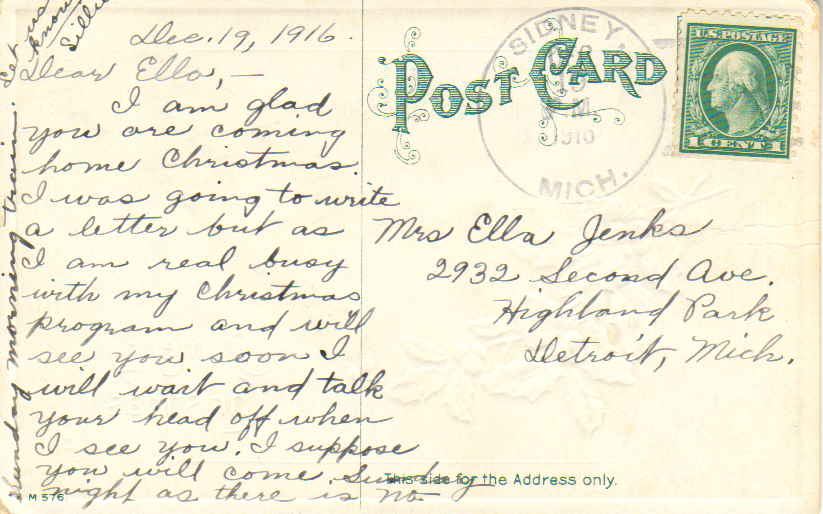 Dec. 19, 1916.
Dear Ella,—
I am glad
you are coming
home Christmas.
I was going to write
a letter but as
I am real busy
with my Christmas
program and will
see you soon I
will wait and talk
your head off when
I see you. I suppose
you will come Sunday
night as there is no
Sunday morning train.
Let us
know
POST CARD
SIDNEY,
MICH.
U.S. POSTAGE
1 CENT 1
Mrs Ella Jenks
2932 Second Ave.
Highland Park
Detroit, Mich.
This side for the Address only.
M 576